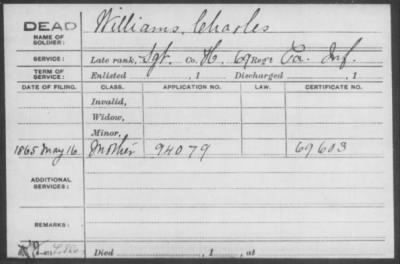 DEAD Williams, Charles
NAME OF SOLDIER:
SERVICE: Late rank, Sgt. Co. H, 69 Reg't Pa. Inf.
TERM OF SERVICE: Enlisted , 1 Discharged , 1
DATE OF FILING. CLASS. APPLICATION NO. LAW. CERTIFICATE NO.
Invalid,
Widow,
Minor,
1865 May 16 Mother 94079 69603
ADDITIONAL SERVICES:
REMARKS:
Died , 1 , at